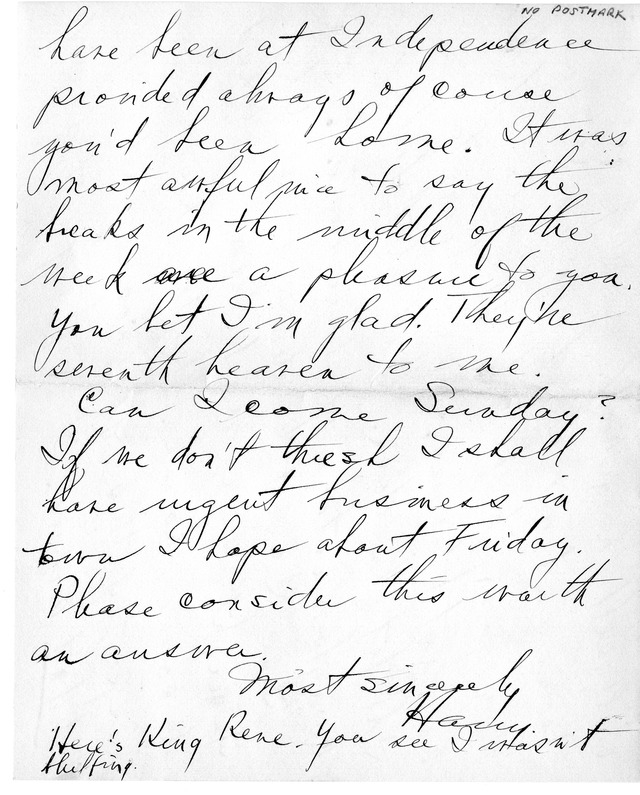 NO POSTMARK
have been at Independence
provided always of couse
you'd been home. It was
most awful nice to say the
breaks in the middle of the
week are a pleasure to you.
You bet I'm glad. They're
seventh heaven to me.
Can I come Sunday?
If we don't thresh I shall
have urgent business in
town I hope about Friday.
Please consider this worth
an answer.
Most sincerely
Harry
Here's King Rene. You see I wasn't
bluffing.